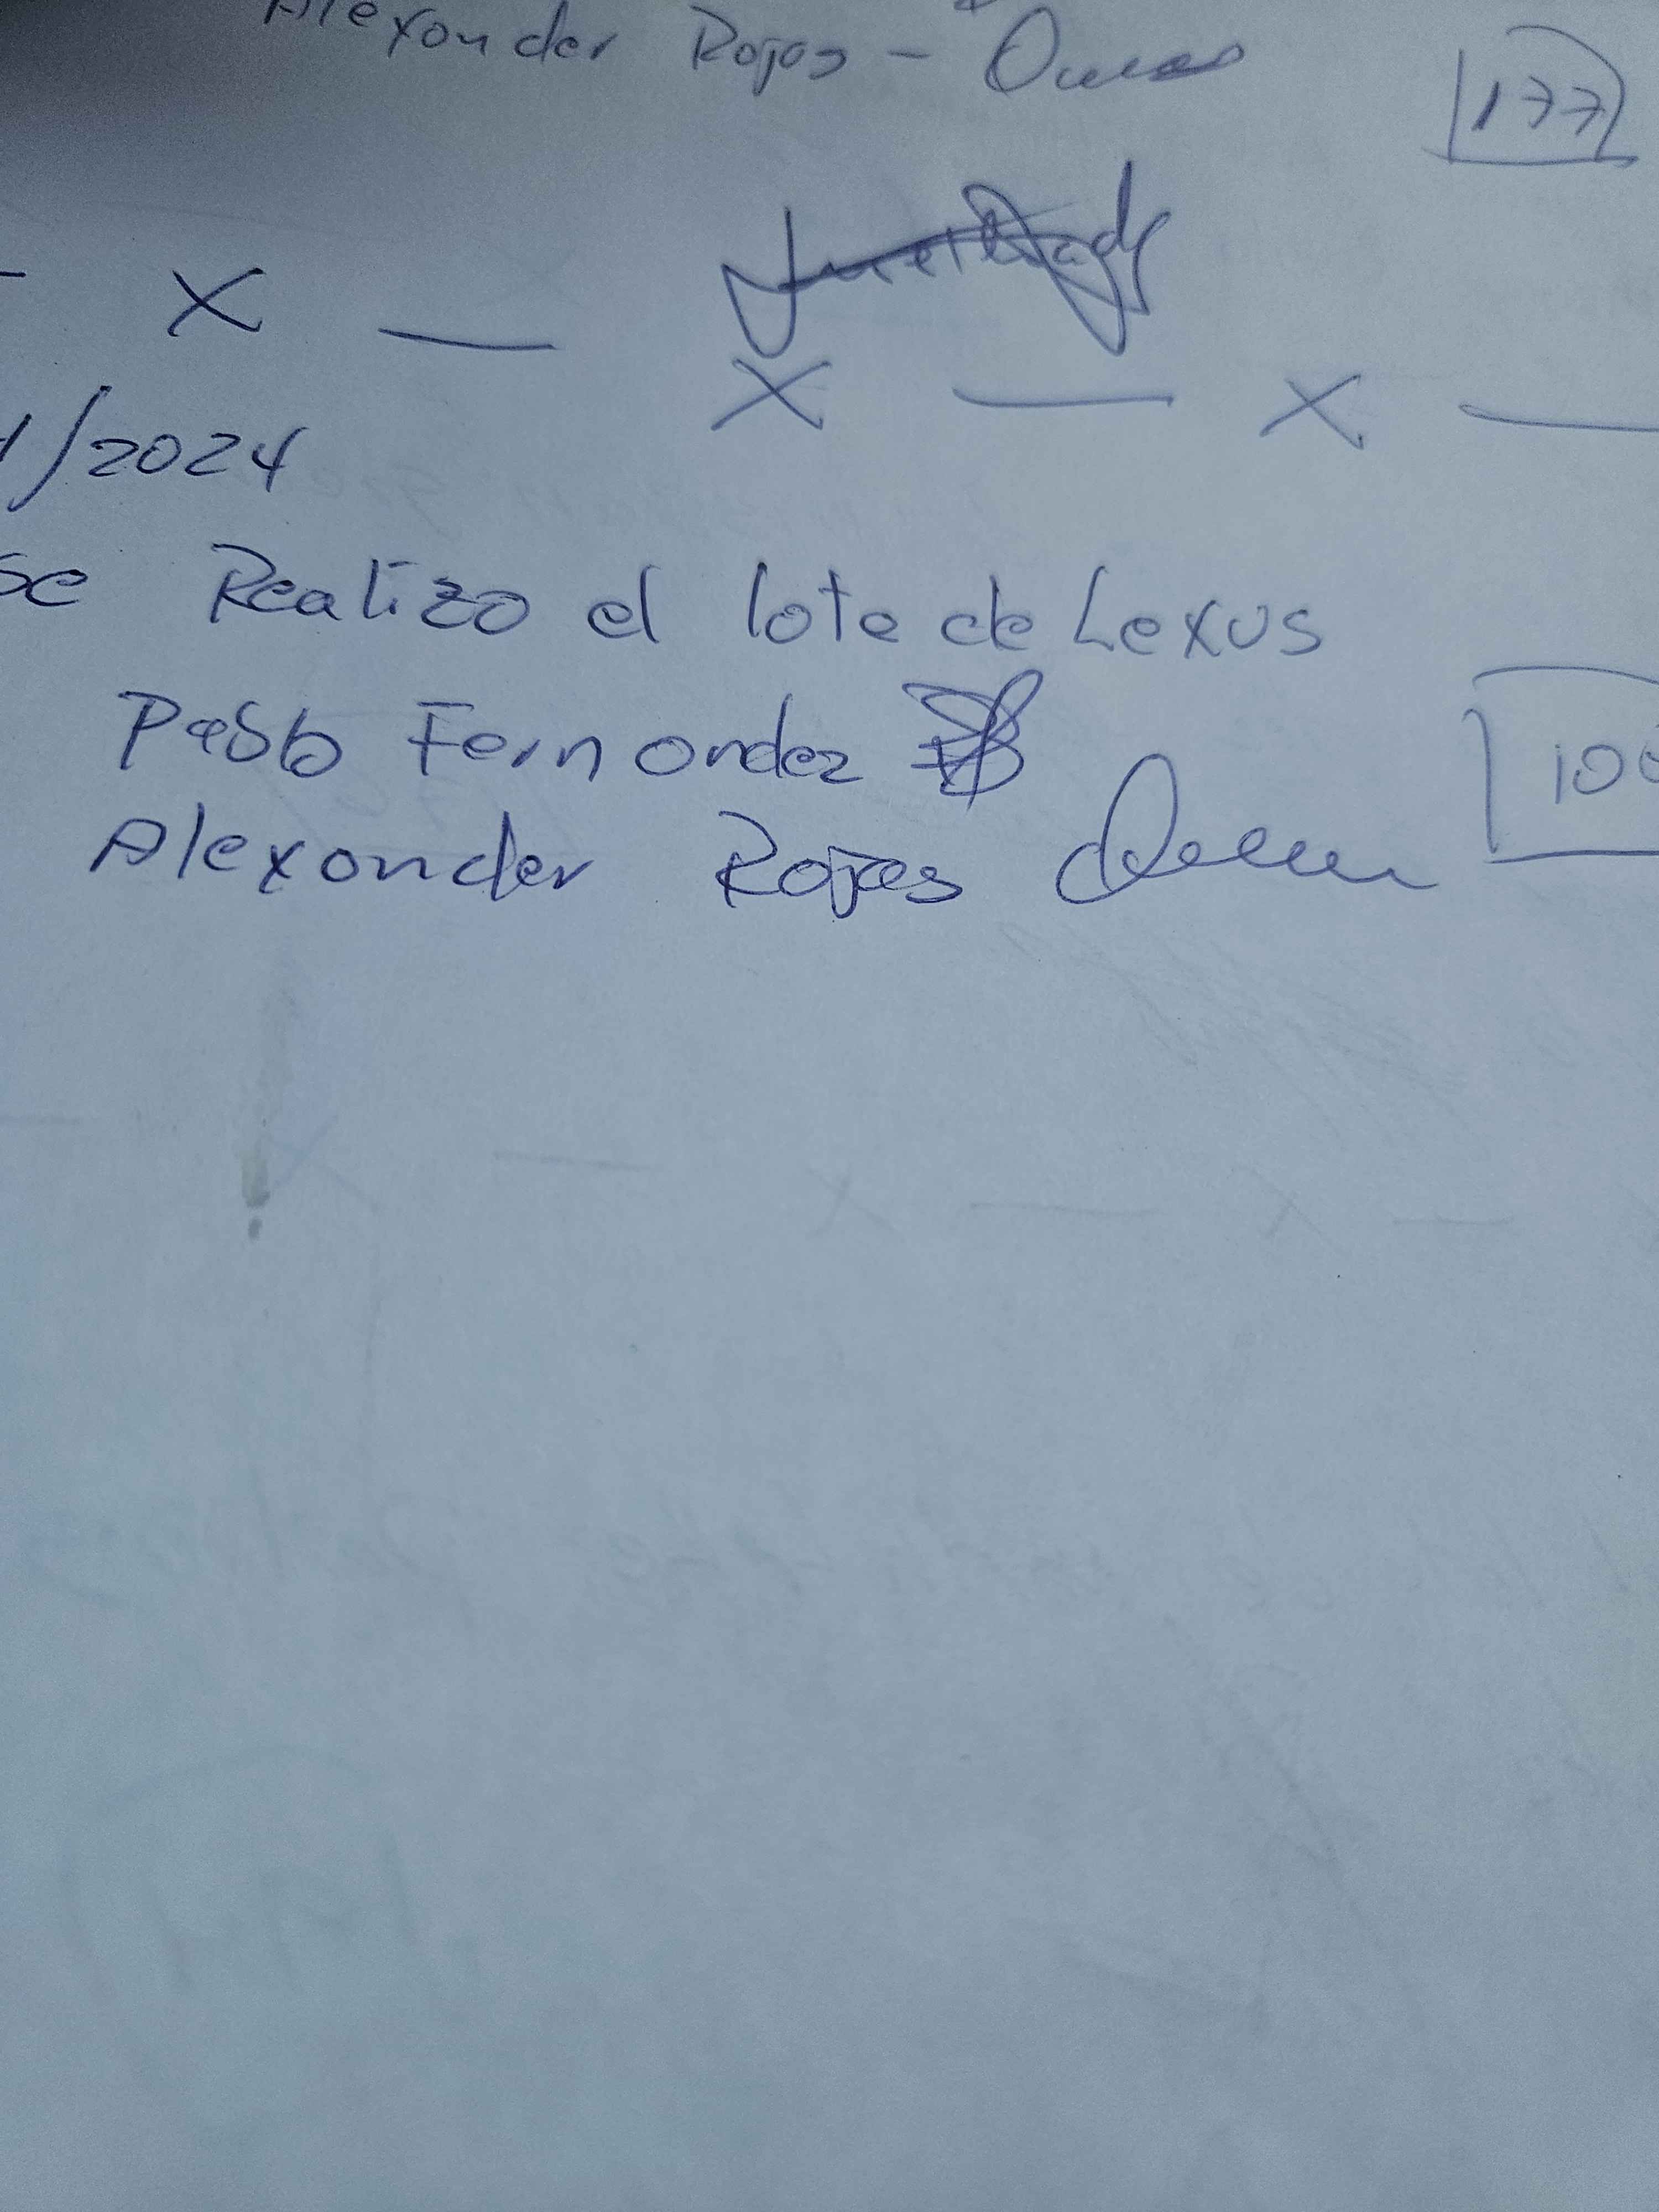 Alexander Rojas -
177
X —
X — X —
1/2024
se Realizo el lote de Lexus
Pablo Fernandez
Alexander Rojas